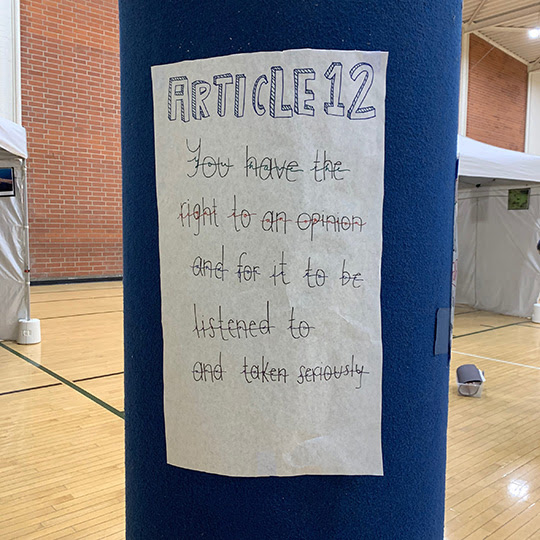 ARTICLE 12
You have the
right to an opinion
and for it to be
listened to
and taken seriously